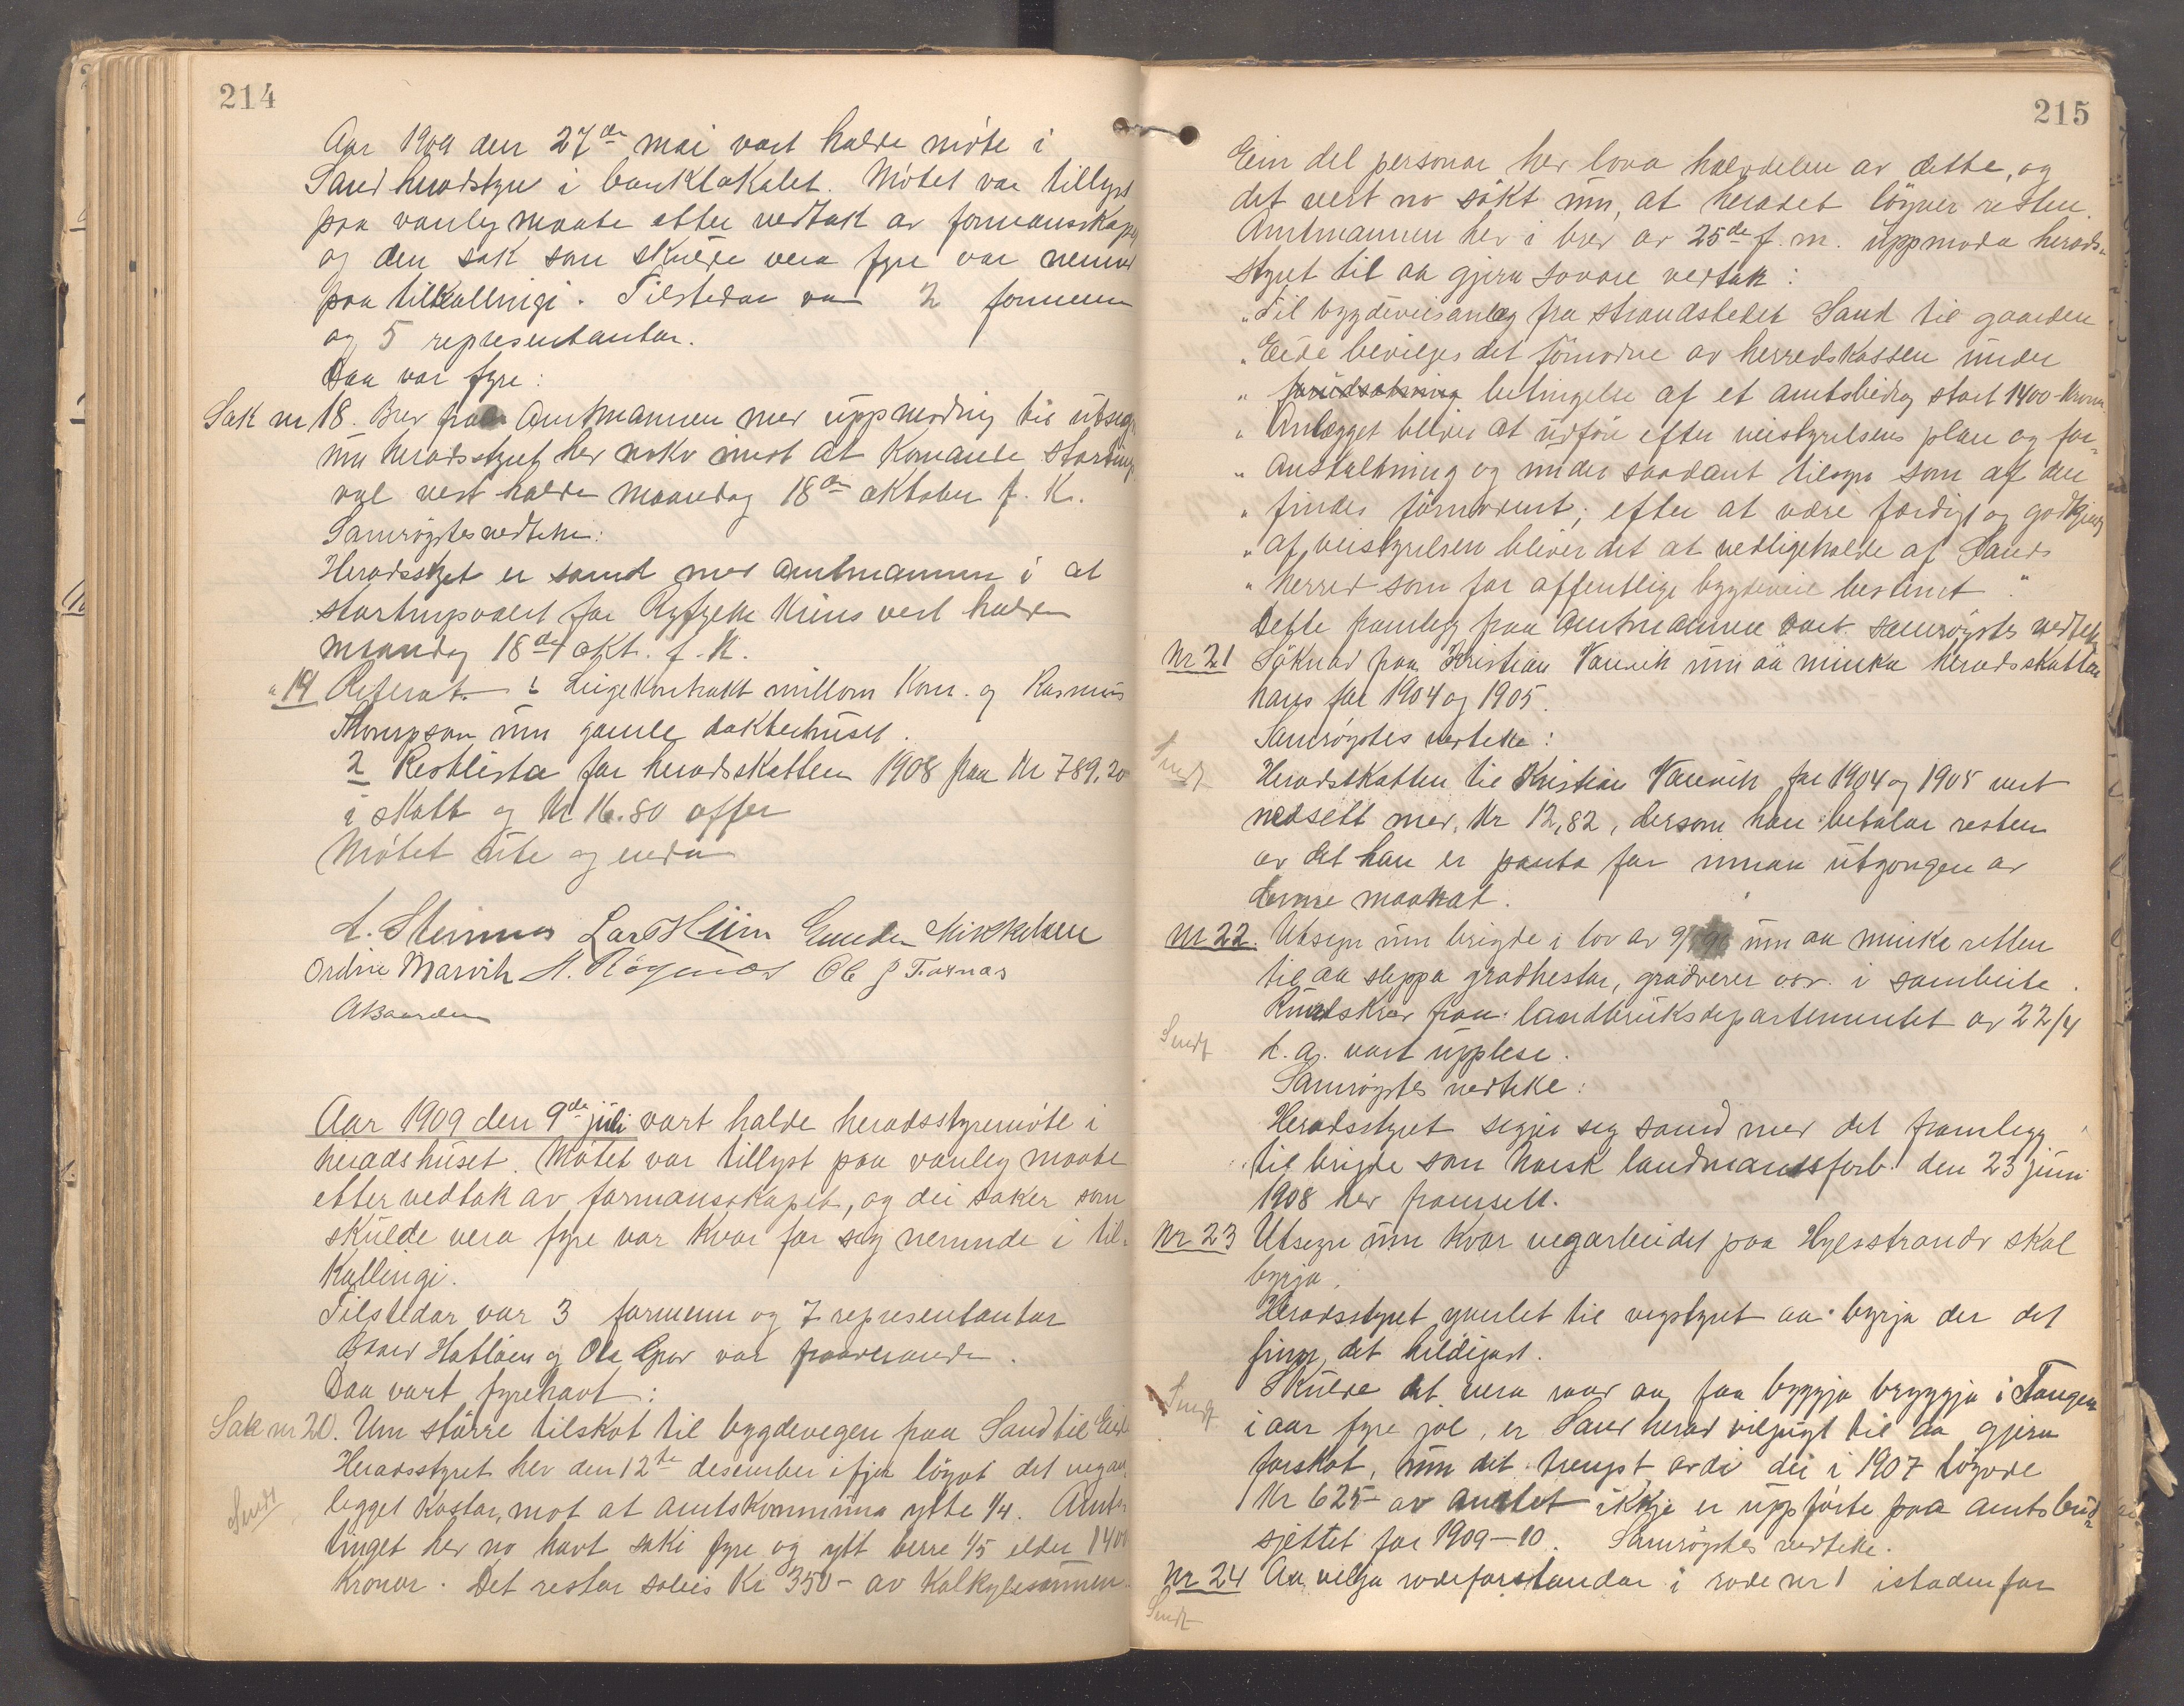 214
Aar 1909 den 27de mai vart halde møte i
Sand heradstyre i banklokalet. Møtet var tillyst
paa vanleg maate etter vedtak av formannskape
og den sak som skulde vera fyre var nemnd
paa tilkallingi. Tilstedar var 2 formenn
og 5 representantar.
Daa var fyre:
Sak nr 18. Brev fraa Amtmannen med uppmoding til utsegn
um heradsstyret hev noko imot at komande stortings
val vert halde maandag 18de oktober f. k.
Samrøystes vedteke:
Heradsstyret er samd med amtmannen i at
stortingsvalet for Ryfylke krins vert halde
maandag 18de okt. f. k.
" 19 Referat. 1 Leigekontrakt millom Kom. og Rasmus
Thompson um gamle dokterhuset.
2 Restlista for heradsskatten 1908 paa Kr 789,20
i skatt og Kr 16.80 offer
Møtet ute og enda
L. Steinnes Lars Hiim Gunder Mikkelsen
Ordin Marvik A. Røgenes Ole J Fornes
A Baarden
Aar 1909 den 9de juli vart halde heradsstyremøte i
heradshuset. Møtet var tillyst paa vanleg maate
etter vedtak av formannskapet, og dei saker som
skulde vera fyre var kvar for seg nemnde i til-
kallingi.
Tilstedar var 3 formenn og 7 representantar
Baard Hatløen og Ola var fraaverande.
Daa vart fyrehavt:
Sak nr 20. Um større tilskot til bygdevegen fraa Sand til Eide
Heradsstyret hev den 12te desember ifjor løyvt det vegan
Sendt
legget kostar, mot at amtskommuna ytte 1/4. Amts-
tinget hev no havt saki fyre og ytt berre 1/5 elder 1400
kronor. Det restar soleis Kr 350- av kalkylesummen.
215
Ein del personar hev lova halvdelen av dette, og
det vert no søkt um, at heradet løyver resten.
Amtmannen hev i brev av 25de f. m. uppmoda herads-
styret til aa gjera sovore vedtak:
"Til bygdeveisanlæg fra strandstedet Sand til gaarden
"Eide bevilges det fornødne av herredskassen under
" forudsætning betingelse af et amtsbidrag stort 1400 kroner.
" Anlægget bliver at udføre efter veistyrelsens plan og for-
" anstaltning og under saadant tilsyn som af den
" findes fornødent; efter at være færdigt og godkjendt
" af veistyrelsen bliver det at vedligeholde af Sands
" herred som for offentlige bygdeveie bestemt "
Dette framlegg fraa Amtmannen vart samrøystes vedteke
Nr 21 Søknad fraa Kristian Vanvik um aa minka heradsskatten
hans for 1904 og 1905.
Samrøystes vedteke:
Sendt
Heradskatten til Kristian Vanvik for 1904 og 1905 vert
nedsett med Kr 12,82, dersom han betalar resten
av det han er panta for innan utgongen av
denne maanat.
Nr 22. Utsegn um brigde i lov av um aa minke retten
til aa sleppa gradhestar, gradverer osv. i sambeite.
Rundskriv fraa landbruksdepartementet av 22/4
Sendt
d. a. vart upplese.
Samrøystes vedteke:
Heradsstyret segjer seg samd med det framlegg
til brigde som Norsk landmandsforb. den 23 juni
1908 hev framsett.
Nr 23 Utsegn um kvar vegarbeidet paa Hylsstrandi skal
byrja.
Heradsstyret yverlet til vegstyret aa byrja der det
finn det hildigast.
Sendt
Skulde det vera raad aa faa byggja bryggja i Tangen
i aar fyre jol, er Sand herad viljugt til aa gjera
forskot, um det trengst, avdi dei i 1907 løyvde
Kr 625- av amtet ikkje er uppførte paa amtsbud-
sjettet for 1909-10. Samrøystes vedteke.
Nr 24 Aa velja rodeforstandar i rode nr 1 istadenfor
Sendt